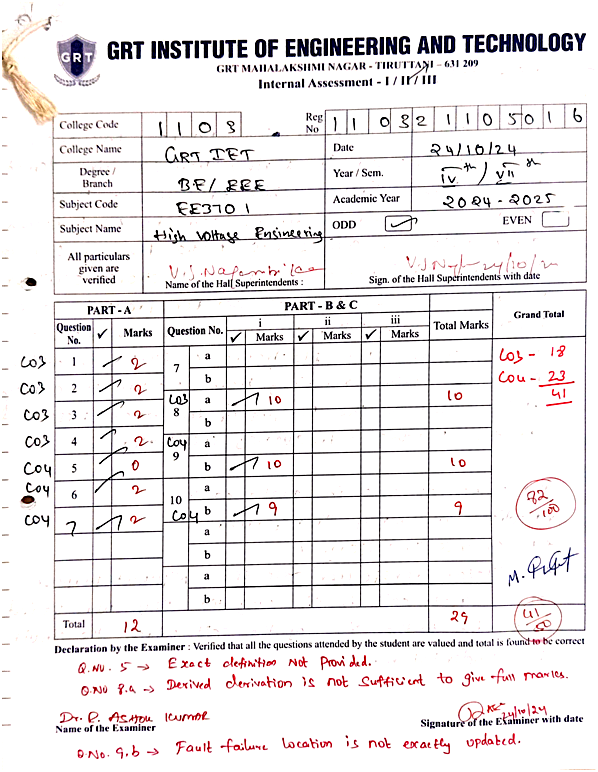 GRT
GRT INSTITUTE OF ENGINEERING AND TECHNOLOGY
GRT MAHALAKSHMI NAGAR - TIRUTTANI – 631 209
Internal Assessment - I / II / III
College Code 1 1 0 3 Reg No 1 1 0 3 2 1 1 0 5 0 1 6
College Name GRT IET Date 24/10/24
Degree / Branch BE/EEE Year / Sem. IV th / VII th
Subject Code EE3701 Academic Year 2024-2025
Subject Name High Voltage Engineering ODD ✓ EVEN
All particulars given are verified
Name of the Hall Superintendents : Sign. of the Hall Superintendents with date
PART - A PART - B & C Grand Total
Question No. ✓ Marks Question No. i ii iii Total Marks
✓ Marks ✓ Marks ✓ Marks
CO3 1 2 7 a CO3 - 18
CO3 2 2 b CO4 - 23
CO3 3 2 CO3 8 a 10 10 41
CO3 4 2 CO4 9 a
CO4 5 0 b 10 10
CO4 6 2 10 a 82/100
CO4 7 2 CO4 b 9 9
a
b
a
b
Total 12 29 41/50
Declaration by the Examiner : Verified that all the questions attended by the student are valued and total is found to be correct
Q.NO. 5 → Exact definition Not Provided.
Q.NO 8.a → Derived derivation is not sufficient to give full marks.
Dr. P. ASHOK KUMAR 24/10/24
Name of the Examiner Signature of the Examiner with date
Q.No. 9.b → Fault failure location is not exactly updated.